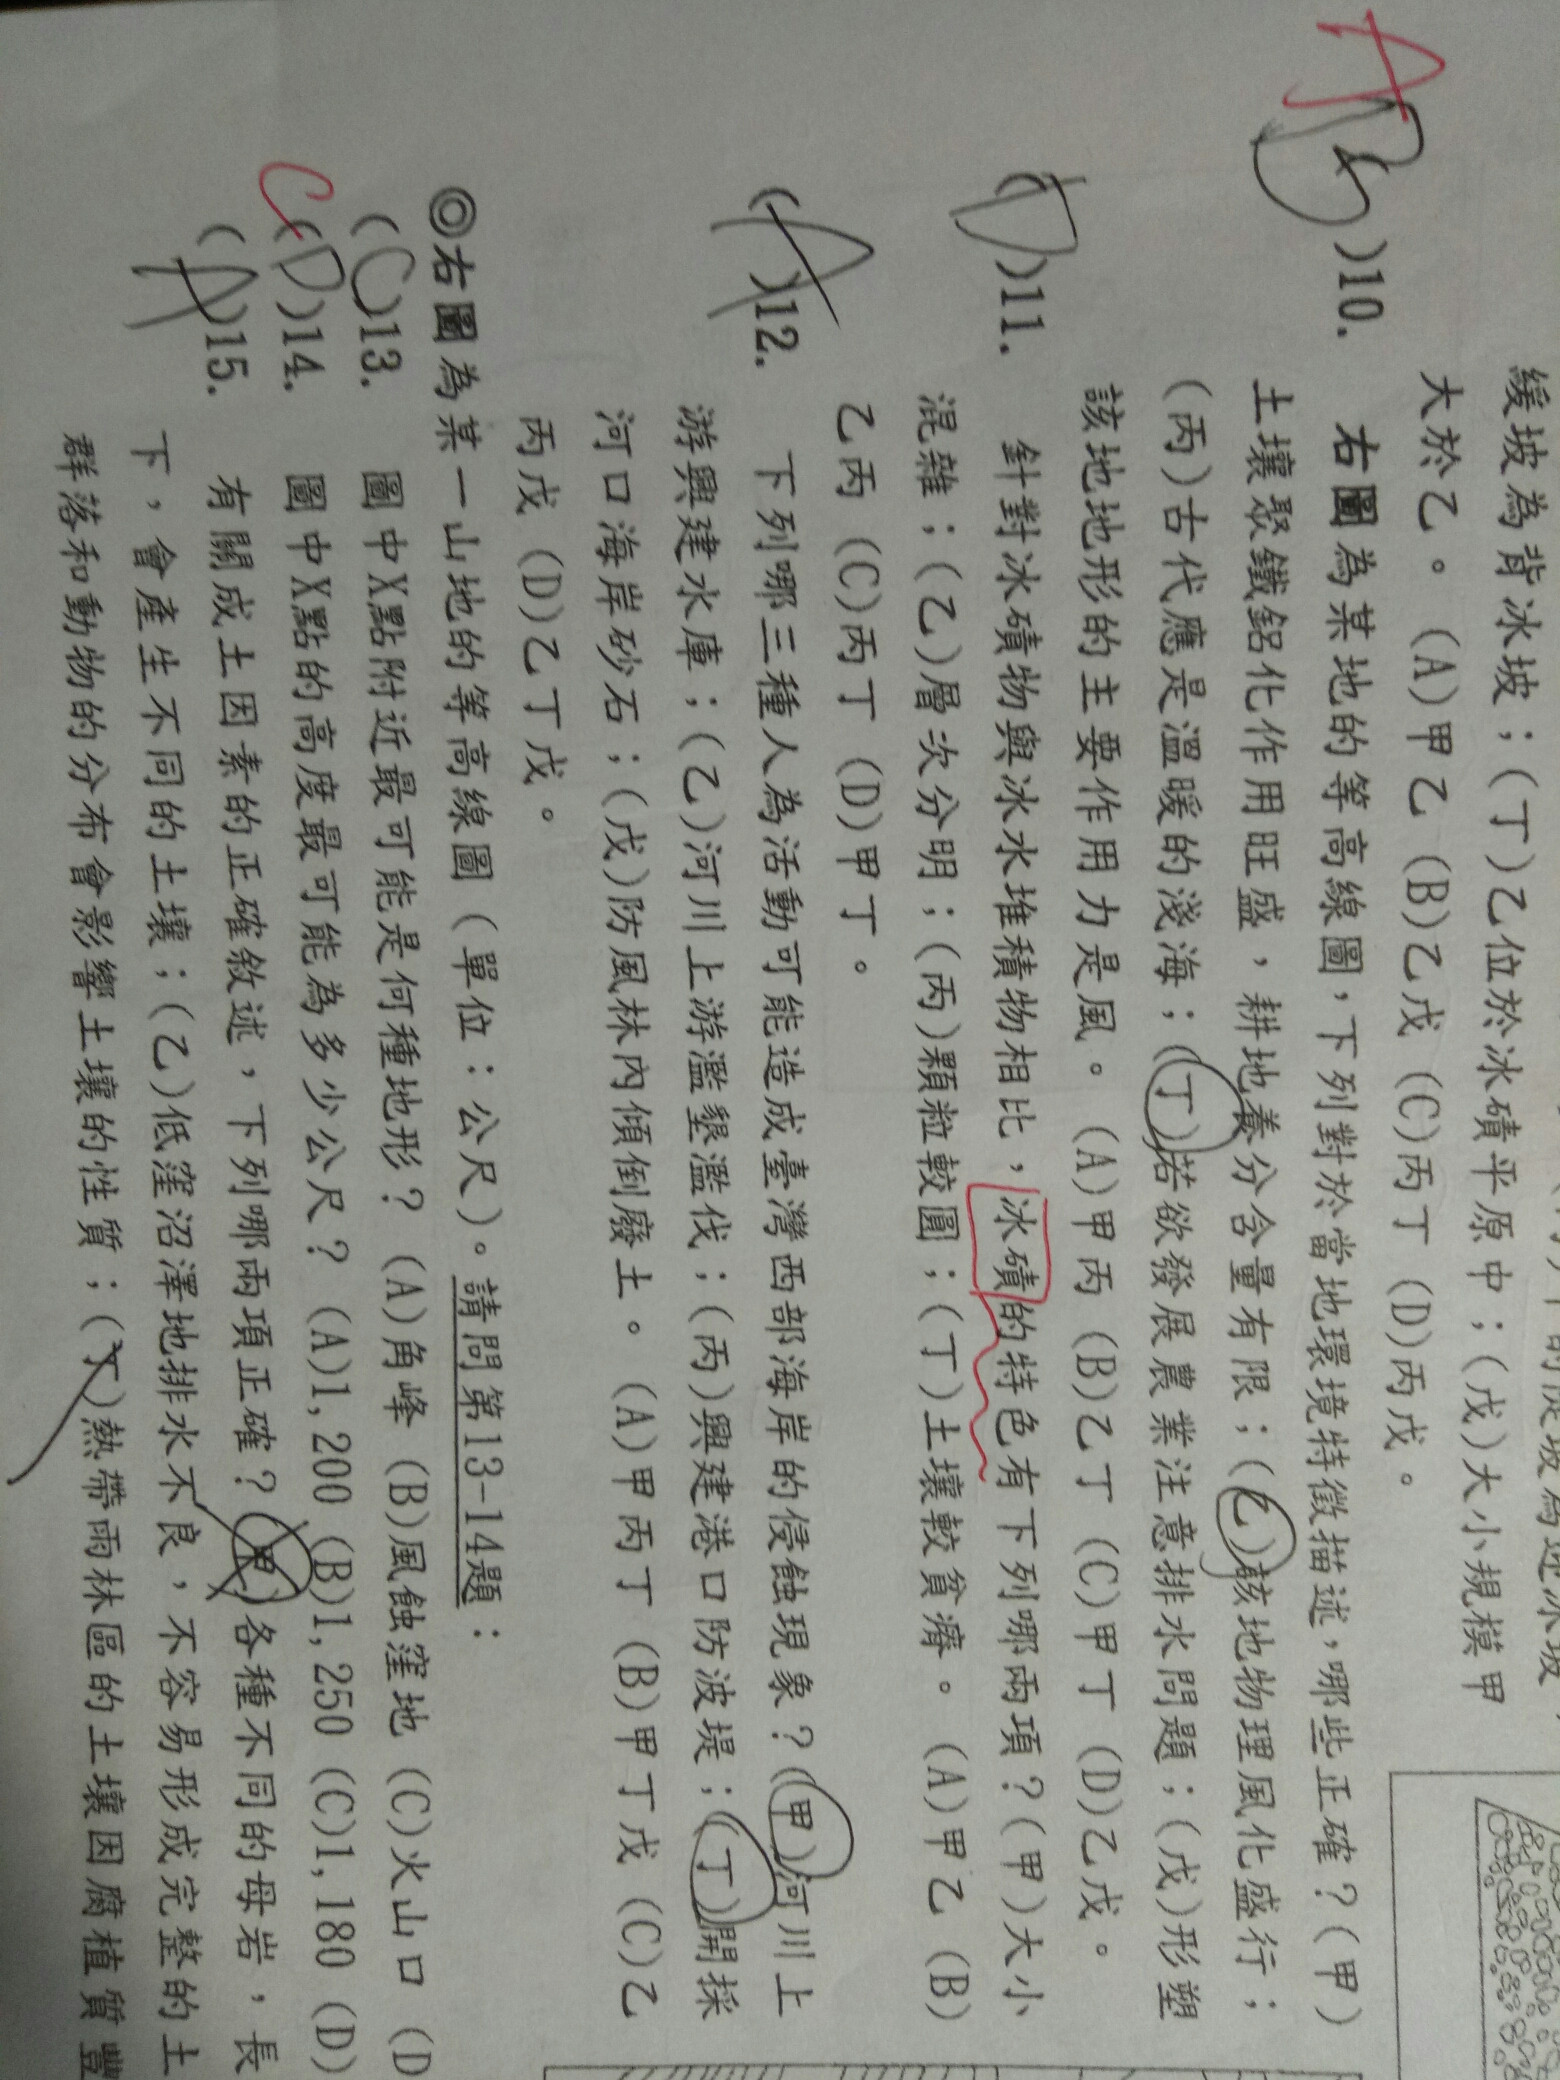 緩坡為背冰坡；(丁)乙位於冰磧平原中；(戊)大小規模甲
大於乙。(A)甲乙 (B)乙戊 (C)丙丁 (D)丙戊。
A B )10. 右圖為某地的等高線圖，下列對於當地環境特徵描述，哪些正確？(甲)
土壤聚鐵鋁化作用旺盛，耕地養分含量有限；(乙)該地物理風化盛行；
(丙)古代應是溫暖的淺海；(丁)若欲發展農業注意排水問題；(戊)形塑
該地地形的主要作用力是風。(A)甲丙 (B)乙丁 (C)甲丁 (D)乙戊。
(D)11. 針對冰磧物與冰水堆積物相比，冰磧的特色有下列哪兩項？(甲)大小
混雜；(乙)層次分明；(丙)顆粒較圓；(丁)土壤較貧瘠。(A)甲乙 (B)
乙丙 (C)丙丁 (D)甲丁。
(A)12. 下列哪三種人為活動可能造成臺灣西部海岸的侵蝕現象？(甲)河川上
游興建水庫；(乙)河川上游濫墾濫伐；(丙)興建港口防波堤；(丁)開採
河口海岸砂石；(戊)防風林內傾倒廢土。(A)甲丙丁 (B)甲丁戊 (C)乙
丙戊 (D)乙丁戊。
◎右圖為某一山地的等高線圖（單位：公尺）。請問第13-14題：
(C)13. 圖中X點附近最可能是何種地形？(A)角峰 (B)風蝕窪地 (C)火山口 (D
C (D)14. 圖中X點的高度最可能為多少公尺？(A)1,200 (B)1,250 (C)1,180 (D)
(A)15. 有關成土因素的正確敘述，下列哪兩項正確？(甲)各種不同的母岩，長
下，會產生不同的土壤；(乙)低窪沼澤地排水不良，不容易形成完整的土
群落和動物的分布會影響土壤的性質；(丁)熱帶雨林區的土壤因腐植質豐